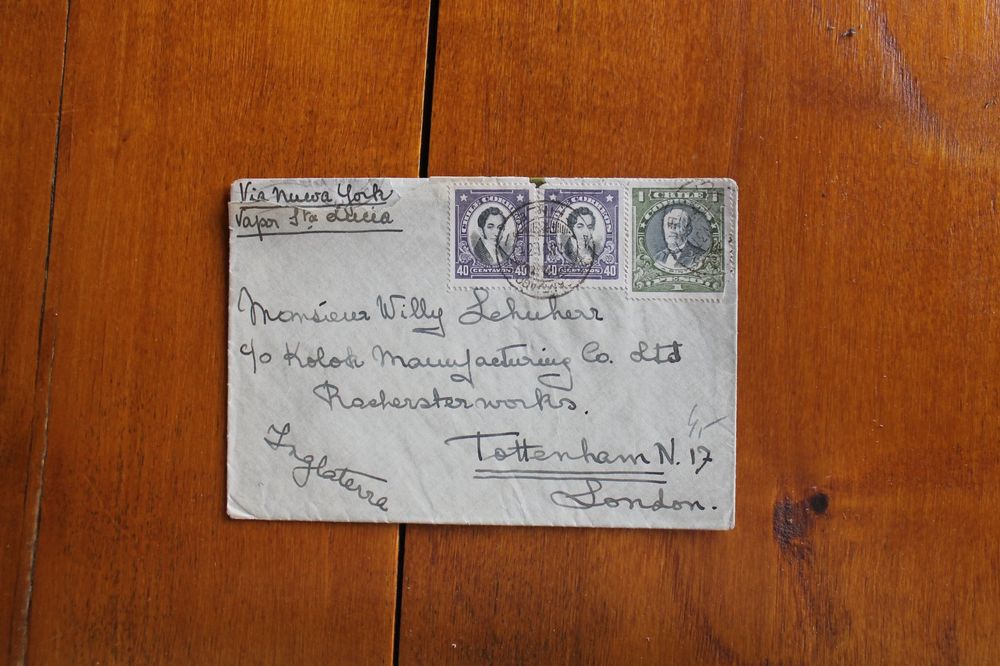 Via Nueva York
Vapor Sta Lucia
CHILE CORREOS
40 CENTAVOS 40
CHILE CORREOS
40 CENTAVOS 40
1 CHILE 1
1
Monsieur Willy Schuherr
c/o Kolok Manufacturing Co. Ltd
Rochersterworks.
Tottenham N. 17
London.
Inglaterra